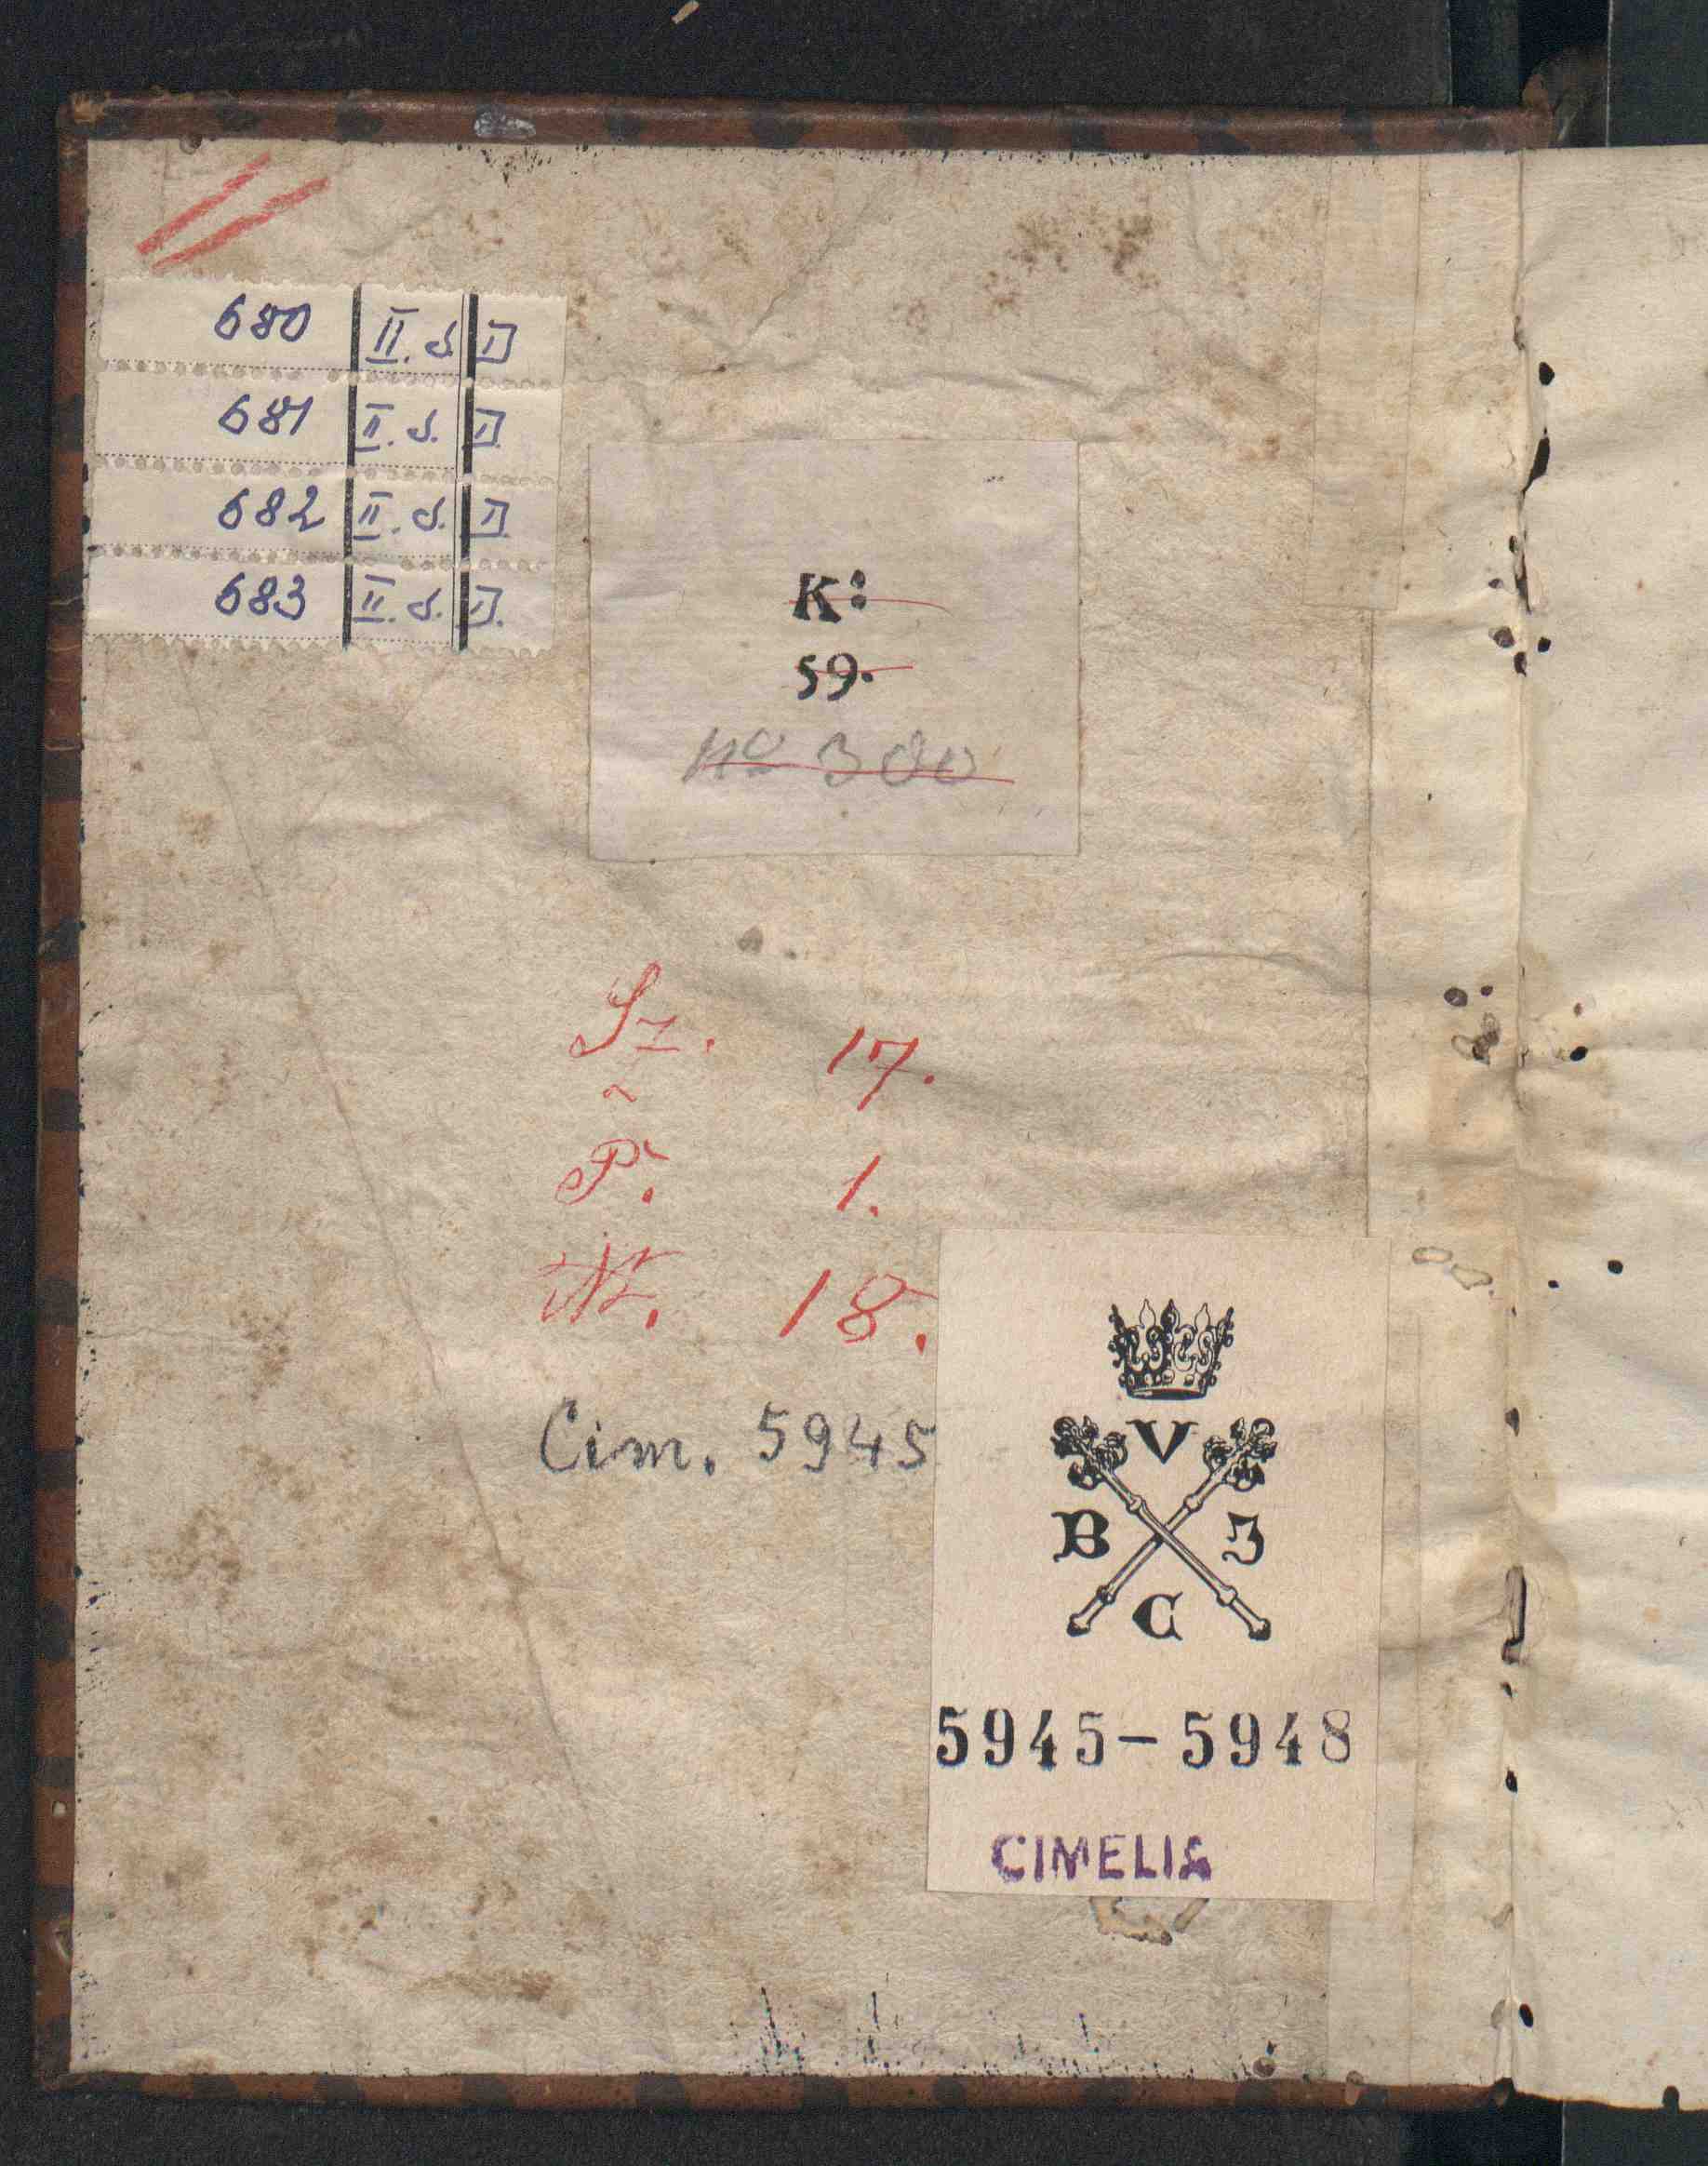 680 II. d. D
681 II. d. D.
682 II. d. D.
683 II. d. D.
K:
59.
No 300
Sz. 17.
P. 1.
N. 18.
Cim. 5945
V
B J
C
5945-5948
CIMELIA